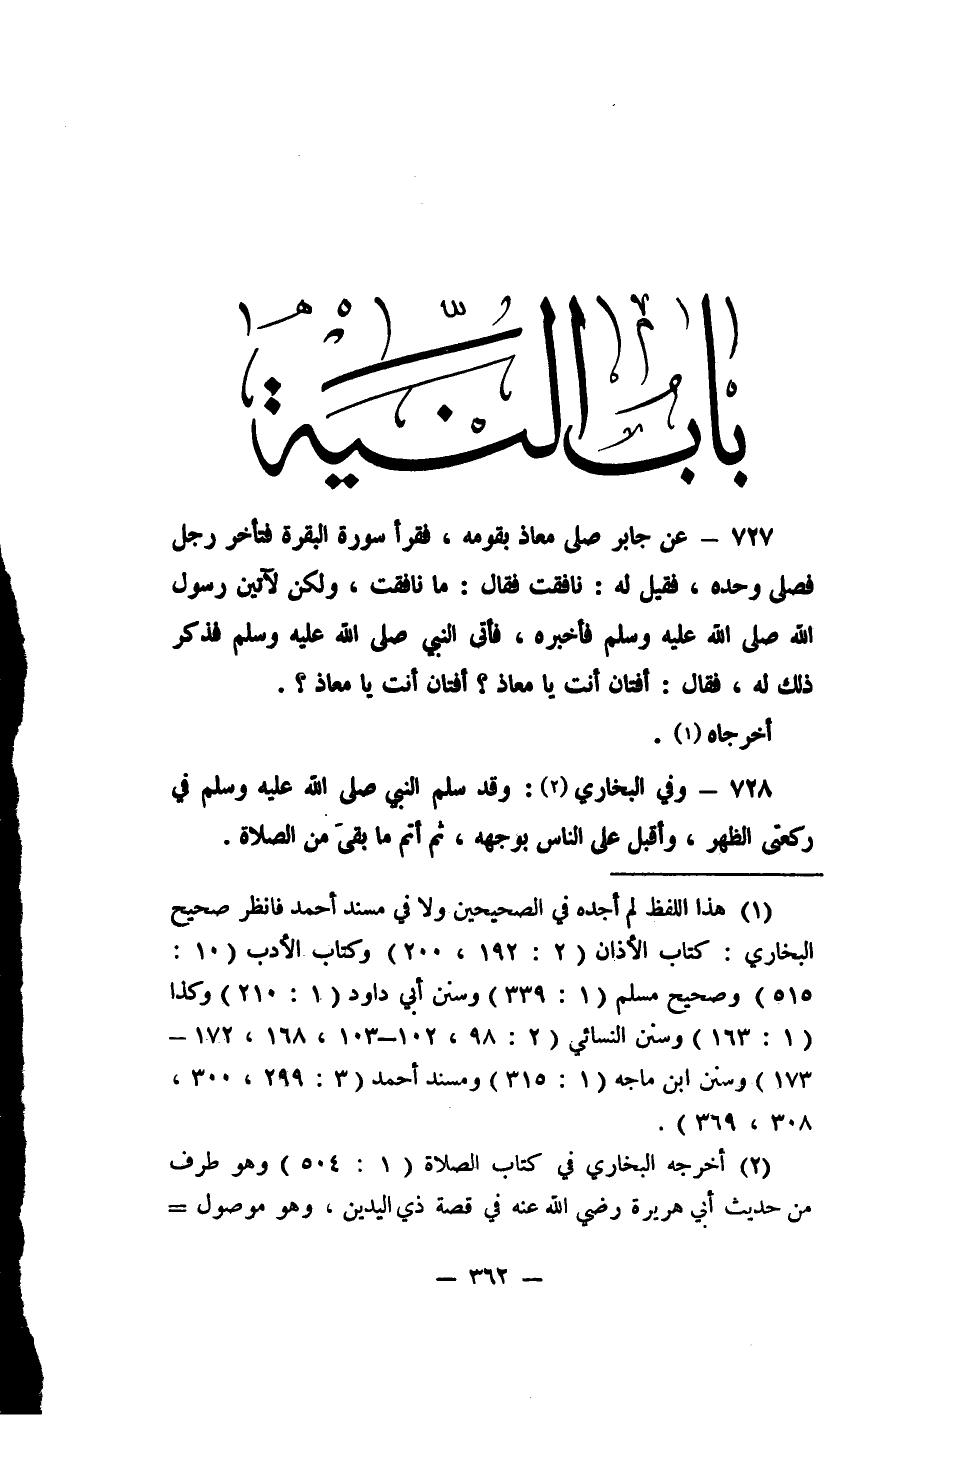 باب النية
٧٢٧ – عن جابر صلى معاذ بقومه ، فقرأ سورة البقرة فتأخر رجل
فصلى وحده ، فقيل له : نافقت فقال : ما نافقت ، ولكن لآتين رسول
الله صلى الله عليه وسلم فأخبره ، فأتى النبي صلى الله عليه وسلم فذكر
ذلك له ، فقال : أفتان أنت يا معاذ ؟ أفتان أنت يا معاذ ؟ .
أخرجاه (١) .
٧٢٨ – وفي البخاري (٢) : وقد سلم النبي صلى الله عليه وسلم في
ركعتى الظهر ، وأقبل على الناس بوجهه ، ثم أتم ما بقىَ من الصلاة .
(١) هذا اللفظ لم أجده في الصحيحين ولا في مسند أحمد فانظر صحيح
البخاري : كتاب الأذان ( ٢ : ١٩٢ ، ٢٠٠ ) وكتاب الأدب ( ١٠ :
٥١٥ ) وصحيح مسلم ( ١ : ٣٣٩ ) وسنن أبي داود ( ١ : ٢١٠ ) وكذا
( ١ : ١٦٣ ) وسنن النسائي ( ٢ : ٩٨ ، ١٠٢–١٠٣ ، ١٦٨ ، ١٧٢ –
١٧٣ ) وسنن ابن ماجه ( ١ : ٣١٥ ) ومسند أحمد ( ٣ : ٢٩٩ ، ٣٠٠ ،
٣٠٨ ، ٣٦٩ ) .
(٢) أخرجه البخاري في كتاب الصلاة ( ١ : ٥٠٤ ) وهو طرف
من حديث أبي هريرة رضي الله عنه في قصة ذي اليدين ، وهو موصول =
– ٣٦٢ –